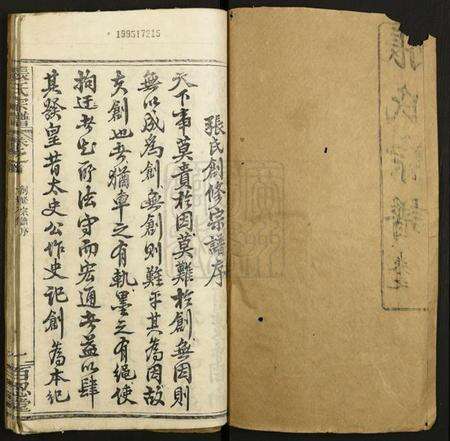 張氏宗譜
199517215
張氏創修宗譜序
天下事莫貴於因莫難於創無因則
無以成為創無創則難乎其為因故
夫創也者猶車之有軌墨之有繩使
拘迂者知所法守而宏通者益以肆
其發皇昔太史公作史記創為本紀
張氏宗譜
創修宗譜序
一
百忍堂